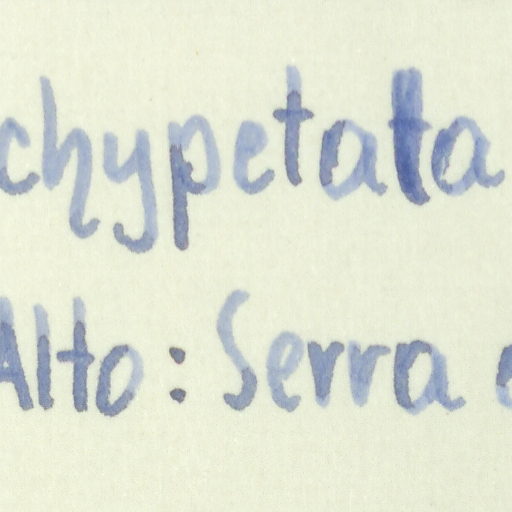 chypetata
Alto: Serra